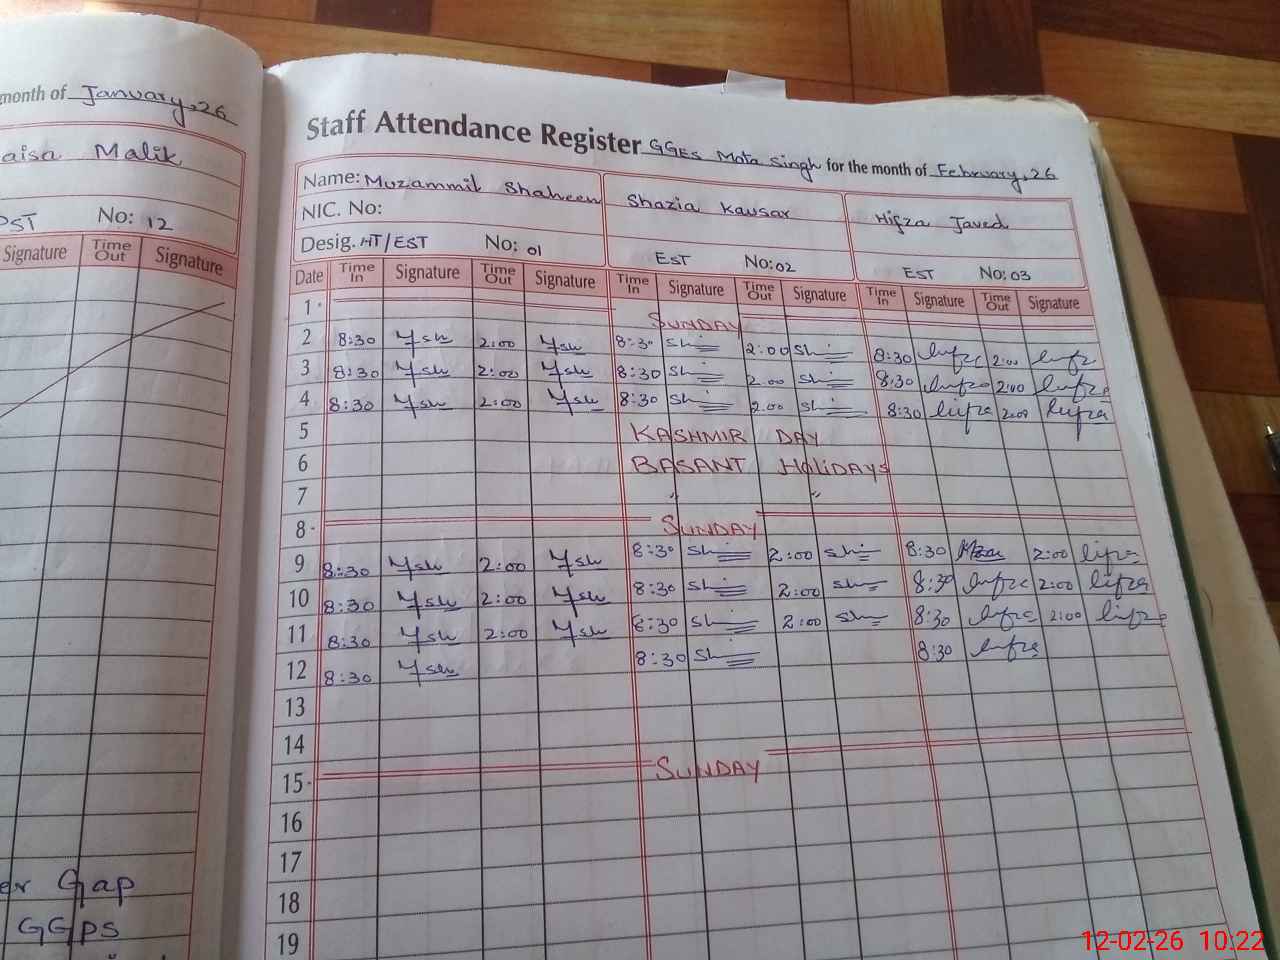 month of January, 26
aisa Malik
PST No: 12
Signature Time Out Signature
er Gap
GGPS
Staff Attendance Register GGES Mota Singh for the month of February, 26
Name: Muzammil Shaheen Shazia Kausar Hifza Javed
NIC. No:
Desig. HT/EST No: 01 EST No: 02 EST No: 03
Date Time In Signature Time Out Signature Time In Signature Time Out Signature Time In Signature Time Out Signature
1 SUNDAY
2 8:30 2:00 8:30 2:00 8:30 2:00
3 8:30 2:00 8:30 2:00 8:30 2:00
4 8:30 2:00 8:30 2:00 8:30 2:00
5 KASHMIR DAY
6 BASANT HoliDAYs
7 " "
8 SUNDAY
9 8:30 2:00 8:30 2:00 8:30 2:00
10 8:30 2:00 8:30 2:00 8:30 2:00
11 8:30 2:00 8:30 2:00 8:30 2:00
12 8:30 8:30 8:30
13
14
15 SUNDAY
16
17
18
19
12-02-26 10:22